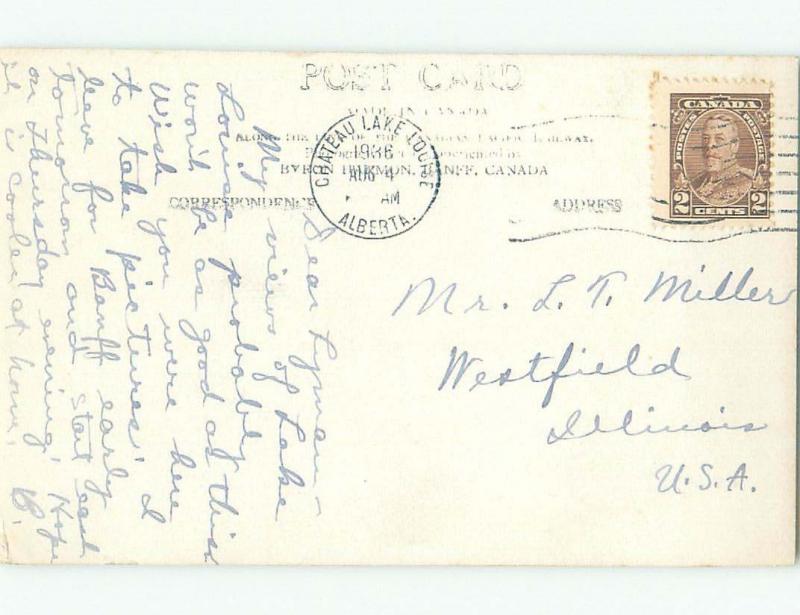 POST CARD
MADE IN CANADA
ALONG THE LINE OF THE CANADIAN PACIFIC RAILWAY.
BYRON HARMON, BANFF, CANADA
CORRESPONDENCE
ADDRESS
CHATEAU LAKE LOUISE
1936
AUG 4
AM
ALBERTA.
CANADA
POSTES POSTAGE
2 CENTS 2
Mr. L. T. Miller
Westfield
Illinois
U.S.A.
Dear Lyman -
My views of Lake
Louise probably
won't be as good as this
Wish you were here
to take pictures. I
leave for Banff early
tomorrow and start east
on Thursday evening. Hope
it is cooler at home.